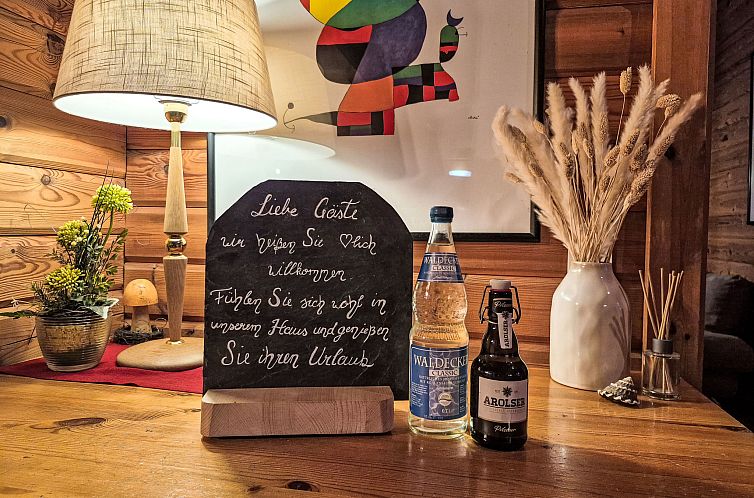 Liebe Gäste
wir heißen Sie ♡lich
willkommen
Fühlen Sie sich wohl in
unserem Haus und genießen
Sie ihren Urlaub
WALDECKER
CLASSIC
WALDECKER
CLASSIC
AROLSER
Pilsener